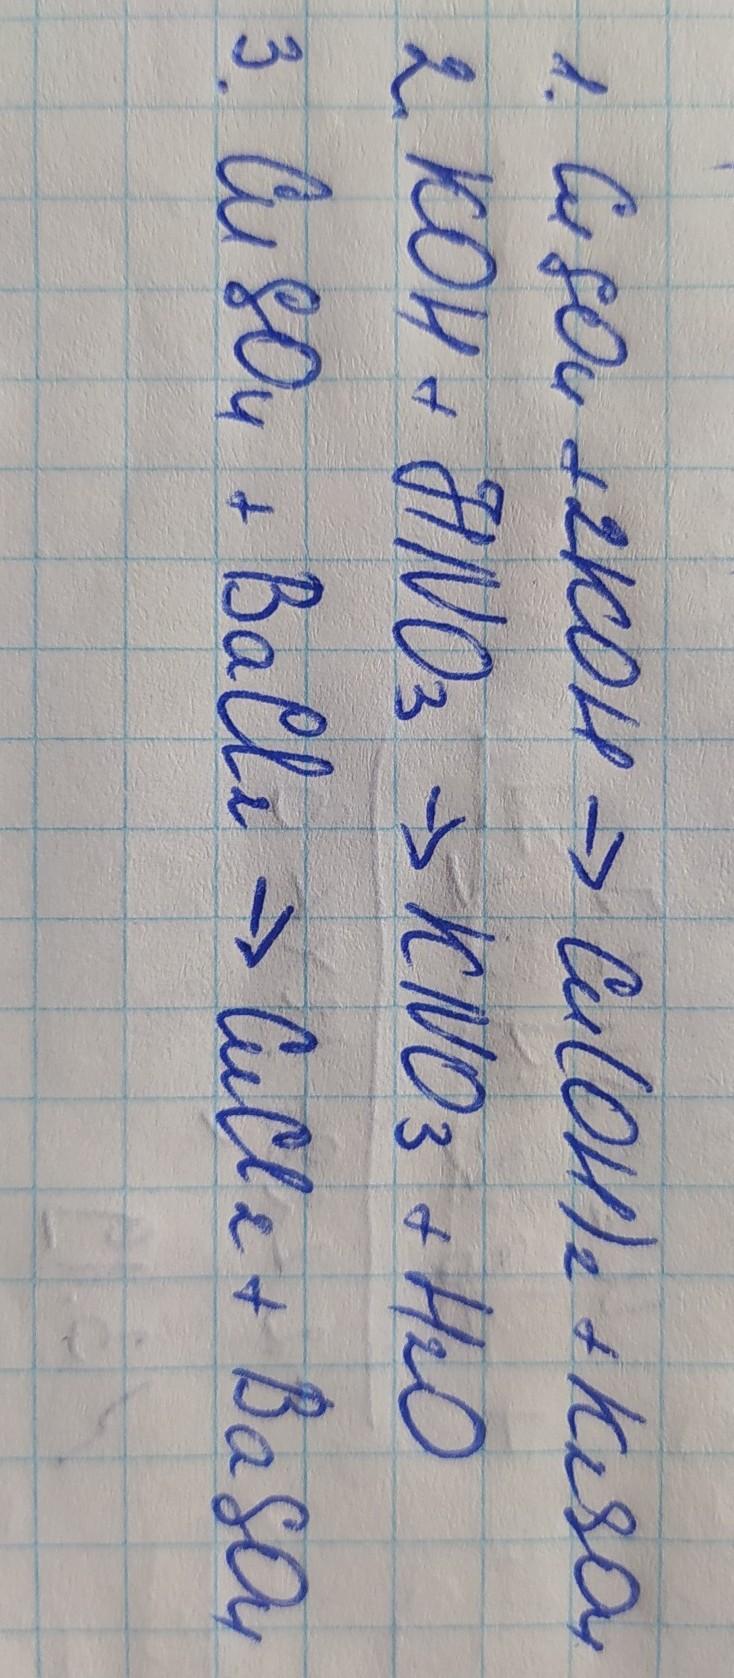 1. CuSO4 + 2KOH → Cu(OH)2 + K2SO4
2. KOH + HNO3 → KNO3 + H2O
3. CuSO4 + BaCl2 → CuCl2 + BaSO4